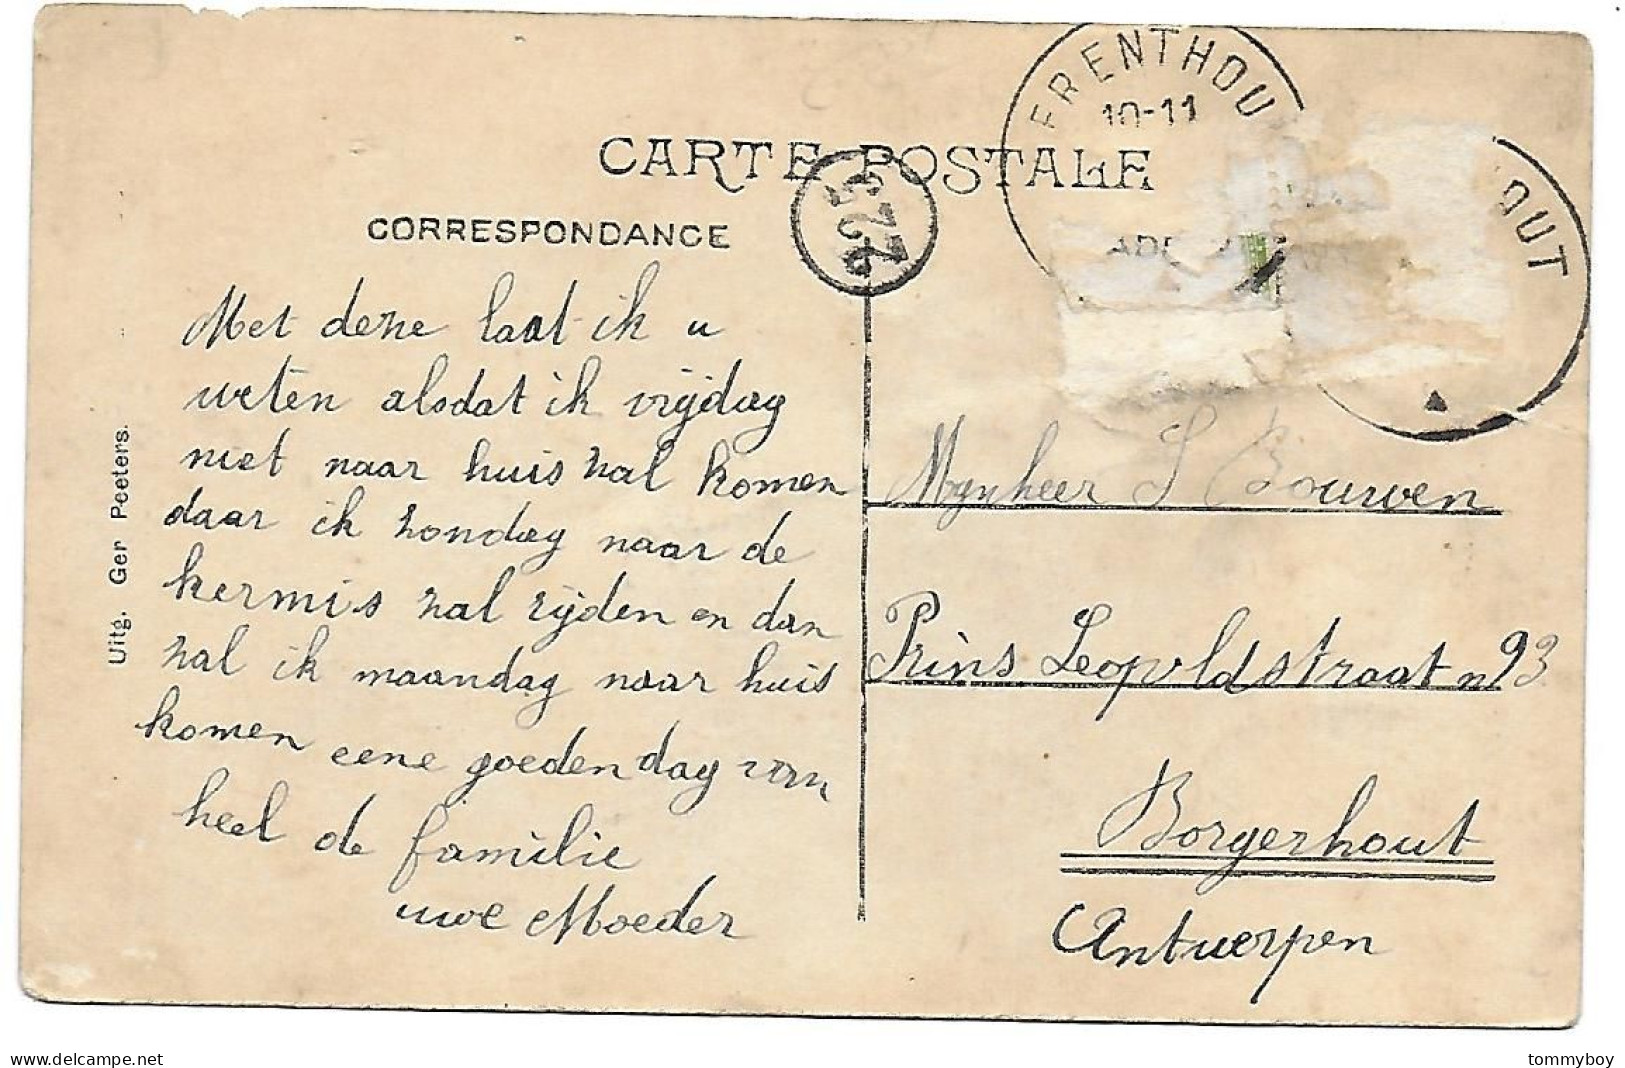 FRENTHOU
10-11
OUT
CARTE POSTALE
CORRESPONDANCE
Met deze laat ik u
weten alsdat ik vrijdag
niet naar huis zal komen
daar ik zondag naar de
kermis zal rijden en dan
zal ik maandag naar huis
komen eene goedendag van
heel de familie
uwe Moeder
Uitg. Ger Peeters.
Mynheer S Bouwen
Prins Leopoldstraat n 93
Borgerhout
Antwerpen
delcampe.net
tommyboy